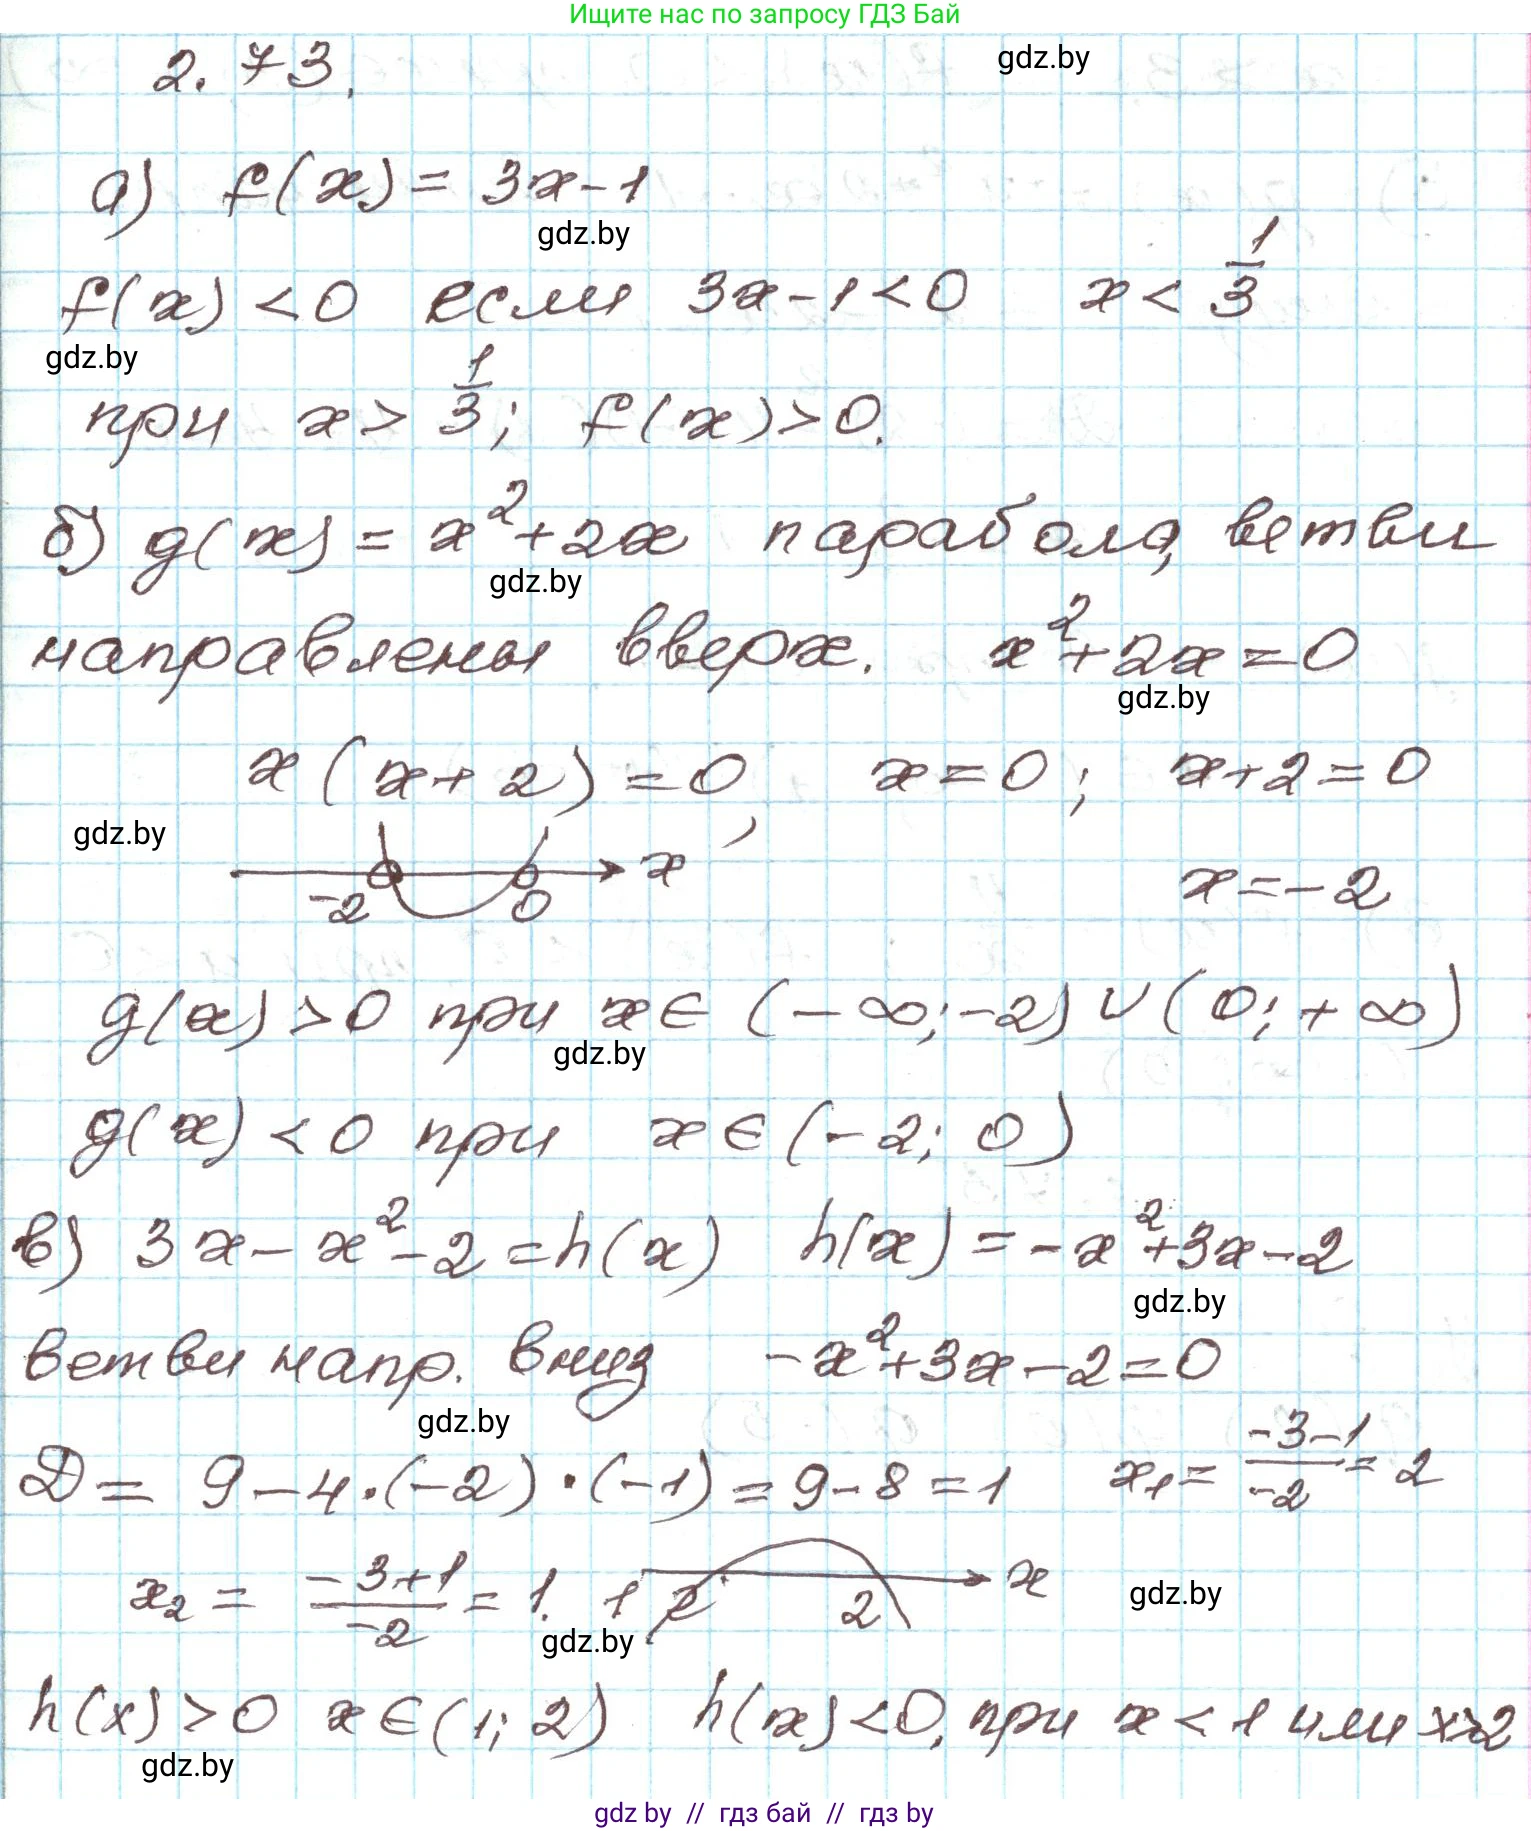 Ищите нас по запросу ГДЗ Бай
2.73.
gdz.by
а) f(x) = 3x-1
gdz.by
f(x) < 0 если 3x-1<0 x < 1/3
gdz.by
при x > 1/3; f(x)>0.
б) g(x) = x²+2x парабола, ветви
gdz.by
направлены вверх. x²+2x=0
gdz.by
x(x+2)=0, x=0; x+2=0
gdz.by
-2 0 x
x=-2
g(x)>0 при x∈(-∞;-2)∪(0;+∞)
gdz.by
g(x)<0 при x∈(-2; 0)
в) 3x-x²-2=h(x) h(x)=-x²+3x-2
gdz.by
ветви напр. вниз -x²+3x-2=0
gdz.by
D= 9-4·(-2)·(-1)=9-8=1 x₁= (-3-1)/-2 = 2
x₂ = (-3+1)/-2 = 1. 1 2 x
gdz.by
gdz.by
h(x)>0 x∈(1; 2) h(x)<0, при x<1 или x>2
gdz.by
gdz by // гдз бай // гдз by